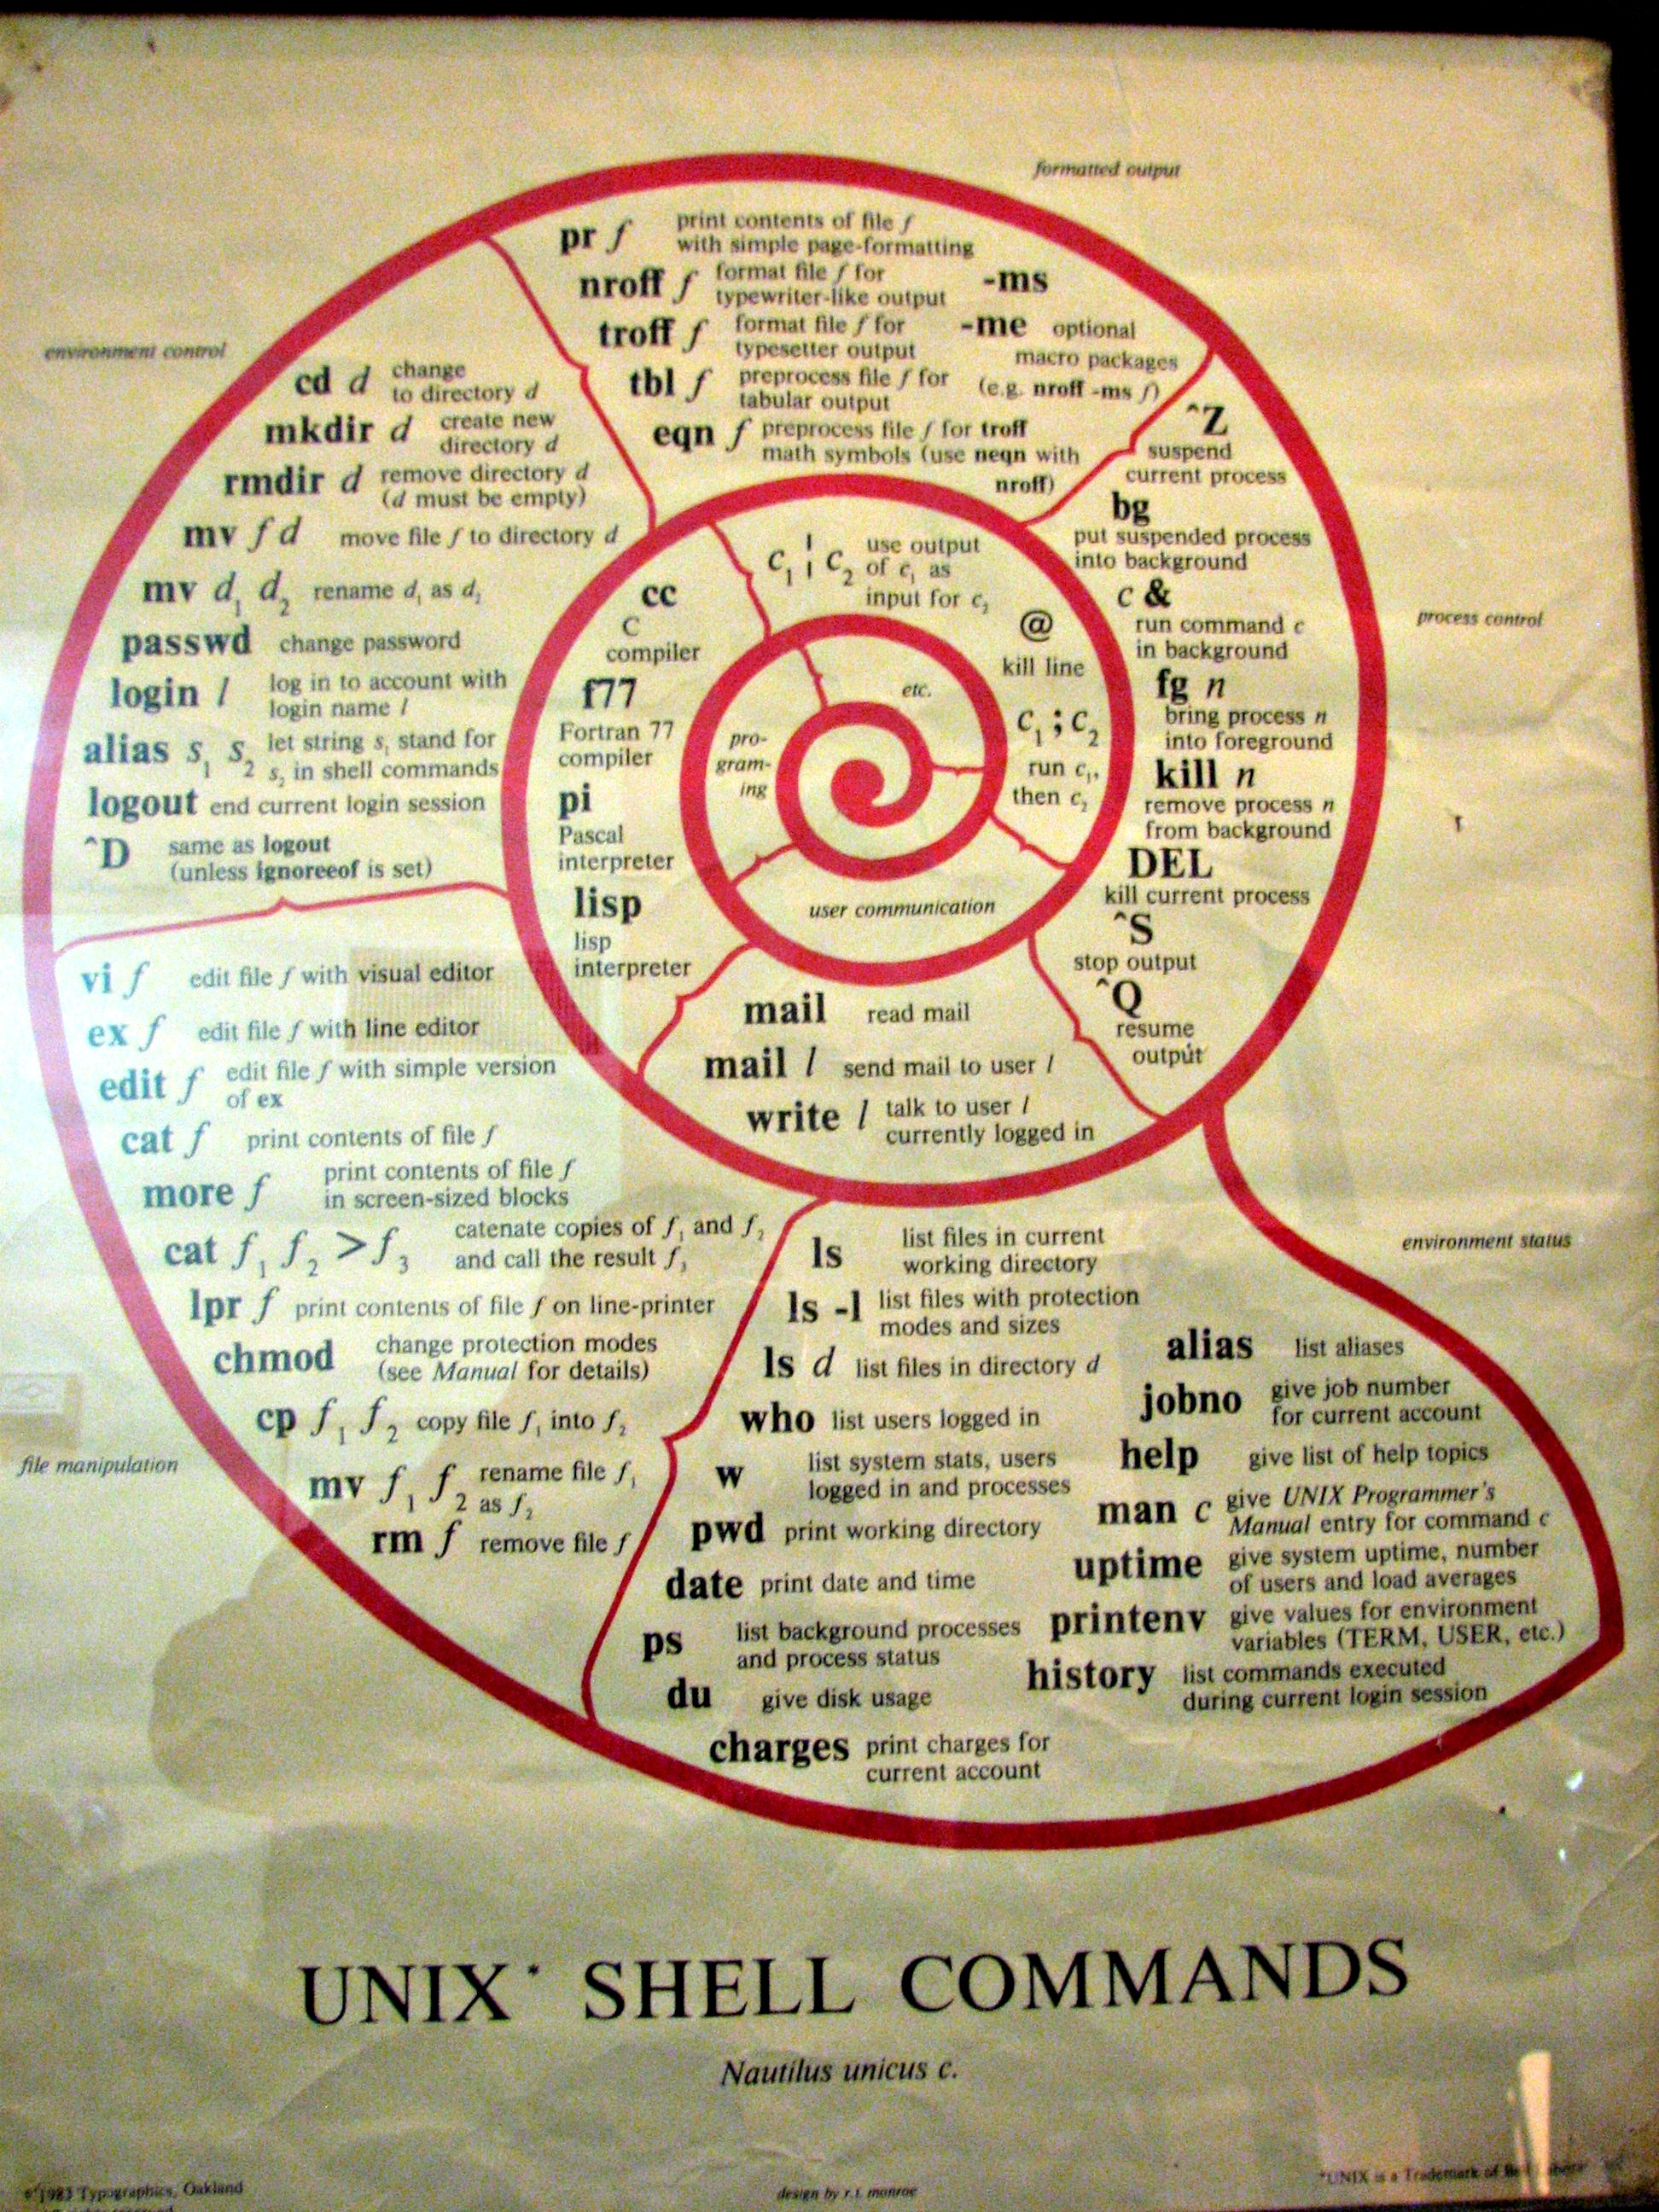 formatted output
pr f print contents of file f
with simple page-formatting
nroff f format file f for
typewriter-like output
-ms
troff f format file f for
typesetter output
-me optional
macro packages
(e.g. nroff -ms f)
tbl f preprocess file f for
tabular output
eqn f preprocess file f for troff
math symbols (use neqn with
nroff)
environment control
cd d change
to directory d
mkdir d create new
directory d
rmdir d remove directory d
(d must be empty)
mv f d move file f to directory d
mv d₁ d₂ rename d₁ as d₂
passwd change password
login l log in to account with
login name l
alias s₁ s₂ let string s₁ stand for
s₂ in shell commands
logout end current login session
^D same as logout
(unless ignoreeof is set)
process control
^Z
suspend
current process
bg
put suspended process
into background
c &
run command c
in background
fg n
bring process n
into foreground
kill n
remove process n
from background
DEL
kill current process
^S
stop output
^Q
resume
output
c₁ | c₂ use output
of c₁ as
input for c₂
@
kill line
c₁ ; c₂
run c₁,
then c₂
etc.
cc
C
compiler
f77
Fortran 77
compiler
pi
Pascal
interpreter
lisp
lisp
interpreter
pro-
gram-
ing
user communication
mail read mail
mail l send mail to user l
write l talk to user l
currently logged in
file manipulation
vi f edit file f with visual editor
ex f edit file f with line editor
edit f edit file f with simple version
of ex
cat f print contents of file f
more f print contents of file f
in screen-sized blocks
cat f₁ f₂ > f₃ catenate copies of f₁ and f₂
and call the result f₃
lpr f print contents of file f on line-printer
chmod change protection modes
(see Manual for details)
cp f₁ f₂ copy file f₁ into f₂
mv f₁ f₂ rename file f₁
as f₂
rm f remove file f
environment status
ls list files in current
working directory
ls -l list files with protection
modes and sizes
ls d list files in directory d
who list users logged in
w list system stats, users
logged in and processes
pwd print working directory
date print date and time
ps list background processes
and process status
du give disk usage
charges print charges for
current account
alias list aliases
jobno give job number
for current account
help give list of help topics
man c give UNIX Programmer's
Manual entry for command c
uptime give system uptime, number
of users and load averages
printenv give values for environment
variables (TERM, USER, etc.)
history list commands executed
during current login session
UNIX* SHELL COMMANDS
Nautilus unicus c.
Typographics, Oakland
design by r.t. monroe
*UNIX is a Trademark of